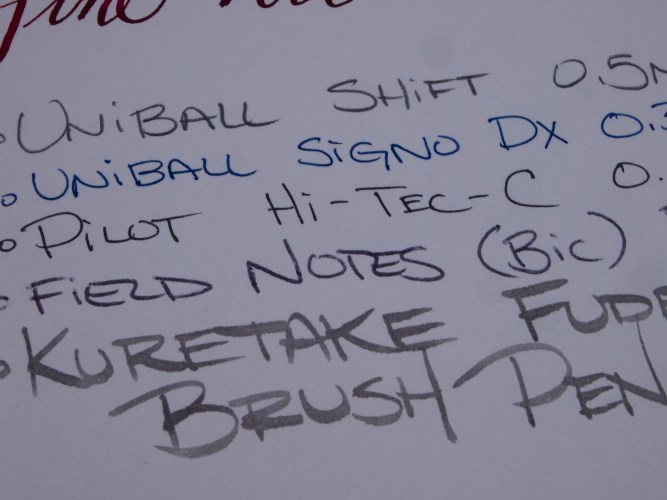 fine
UNiBALL SHiFT 0.5
UNiBALL SiGNO DX 0.3
PiLOT Hi-TEC-C 0.
FiELD NOTES (BiC)
KURETAKE FUDE
BRUSH PEN